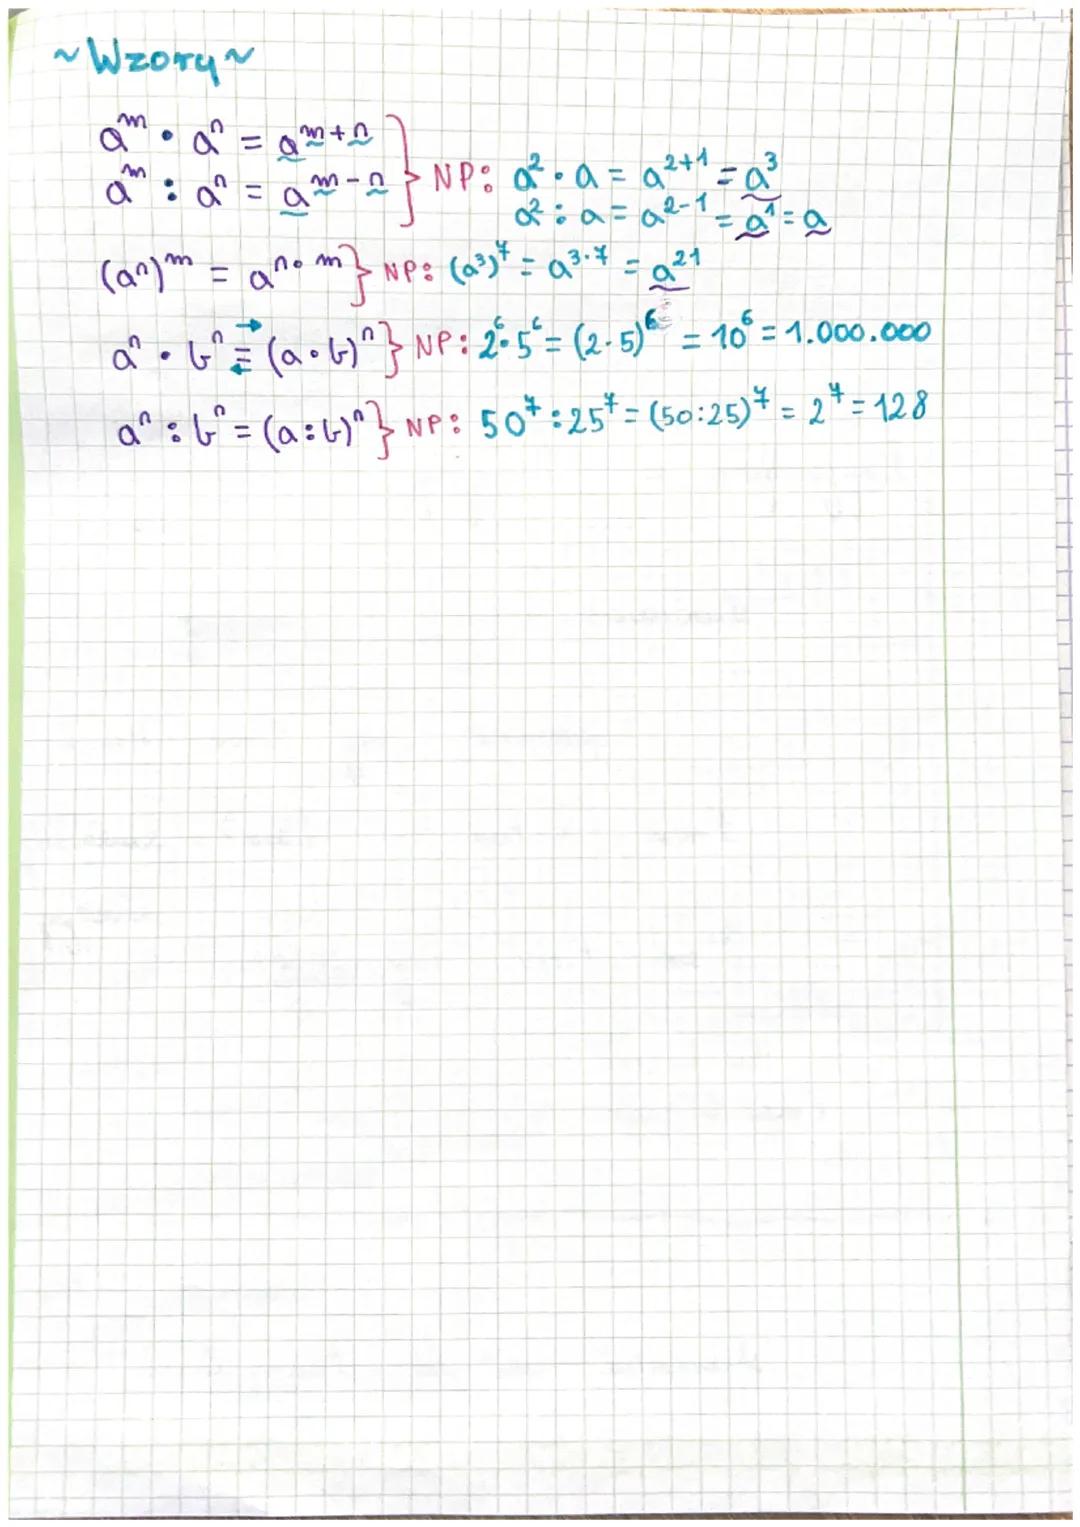 ~Wzory~
aᵐ • aⁿ = aᵐ⁺ⁿ
aᵐ : aⁿ = aᵐ⁻ⁿ } NP: a² • a = a²⁺¹ = a³
a² : a = a²⁻¹ = a¹ = a
(aⁿ)ᵐ = aⁿ•ᵐ } NP: (a³)⁷ = a³·⁷ = a²¹
aⁿ • bⁿ = (a•b)ⁿ } NP: 2⁶•5⁶ = (2·5)⁶ = 10⁶ = 1.000.000
aⁿ : bⁿ = (a:b)ⁿ } NP: 50⁷ : 25⁷ = (50:25)⁷ = 2⁷ = 128